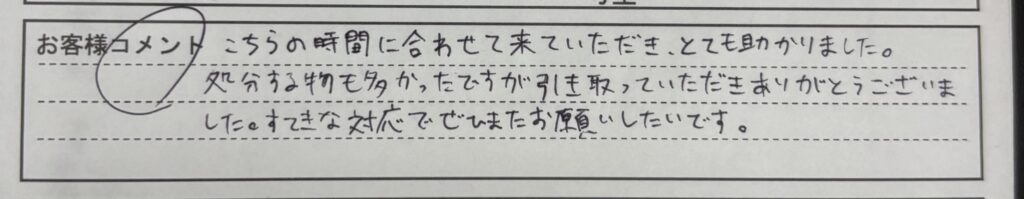 お客様コメント こちらの時間に合わせて来ていただき、とても助かりました。
処分する物も多かったですが引き取っていただきありがとうございま
した。すてきな対応でぜひまたお願いしたいです。